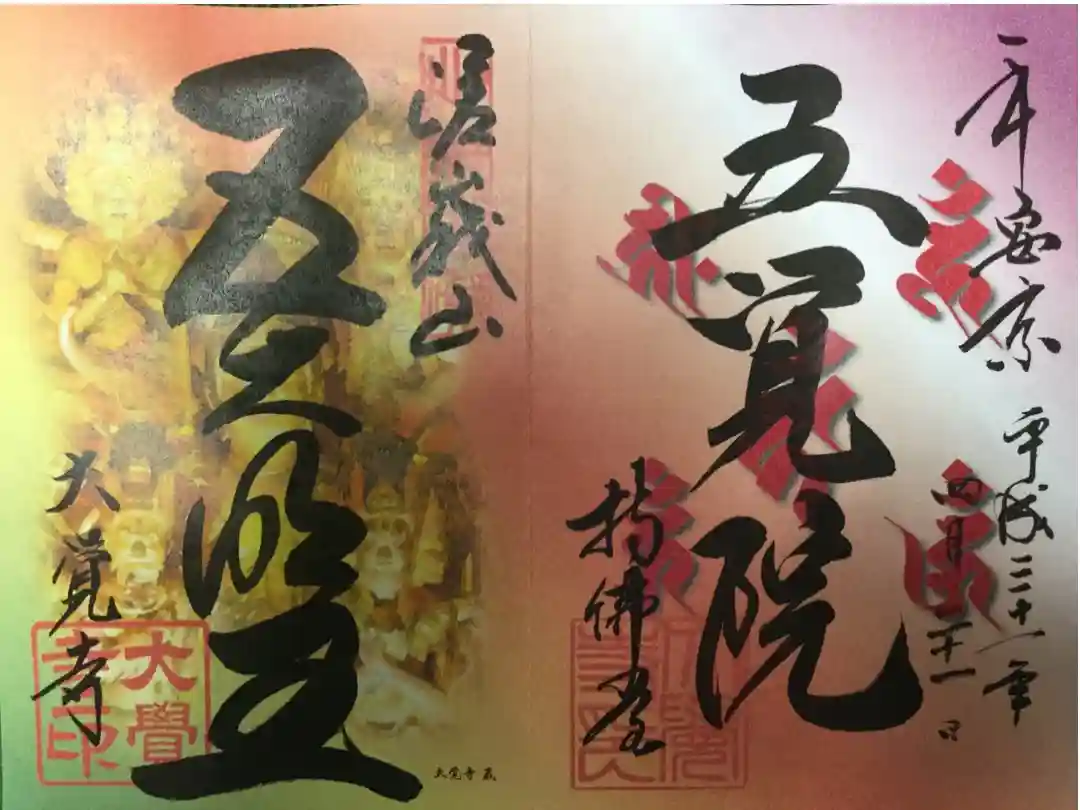 平安京
平成三十一年
四月二十一日
五覚院
持佛堂
嵯峨山
五大明王
大覚寺
大覺寺印
大覚寺蔵